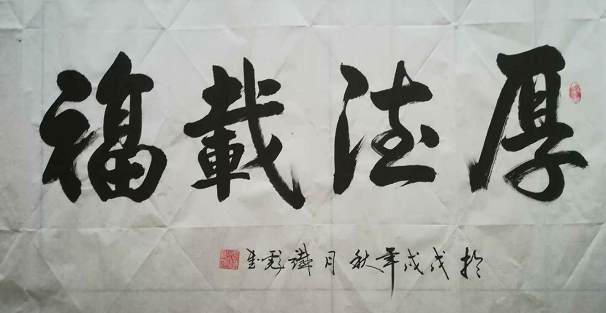 厚德载福
於戊戌年秋月